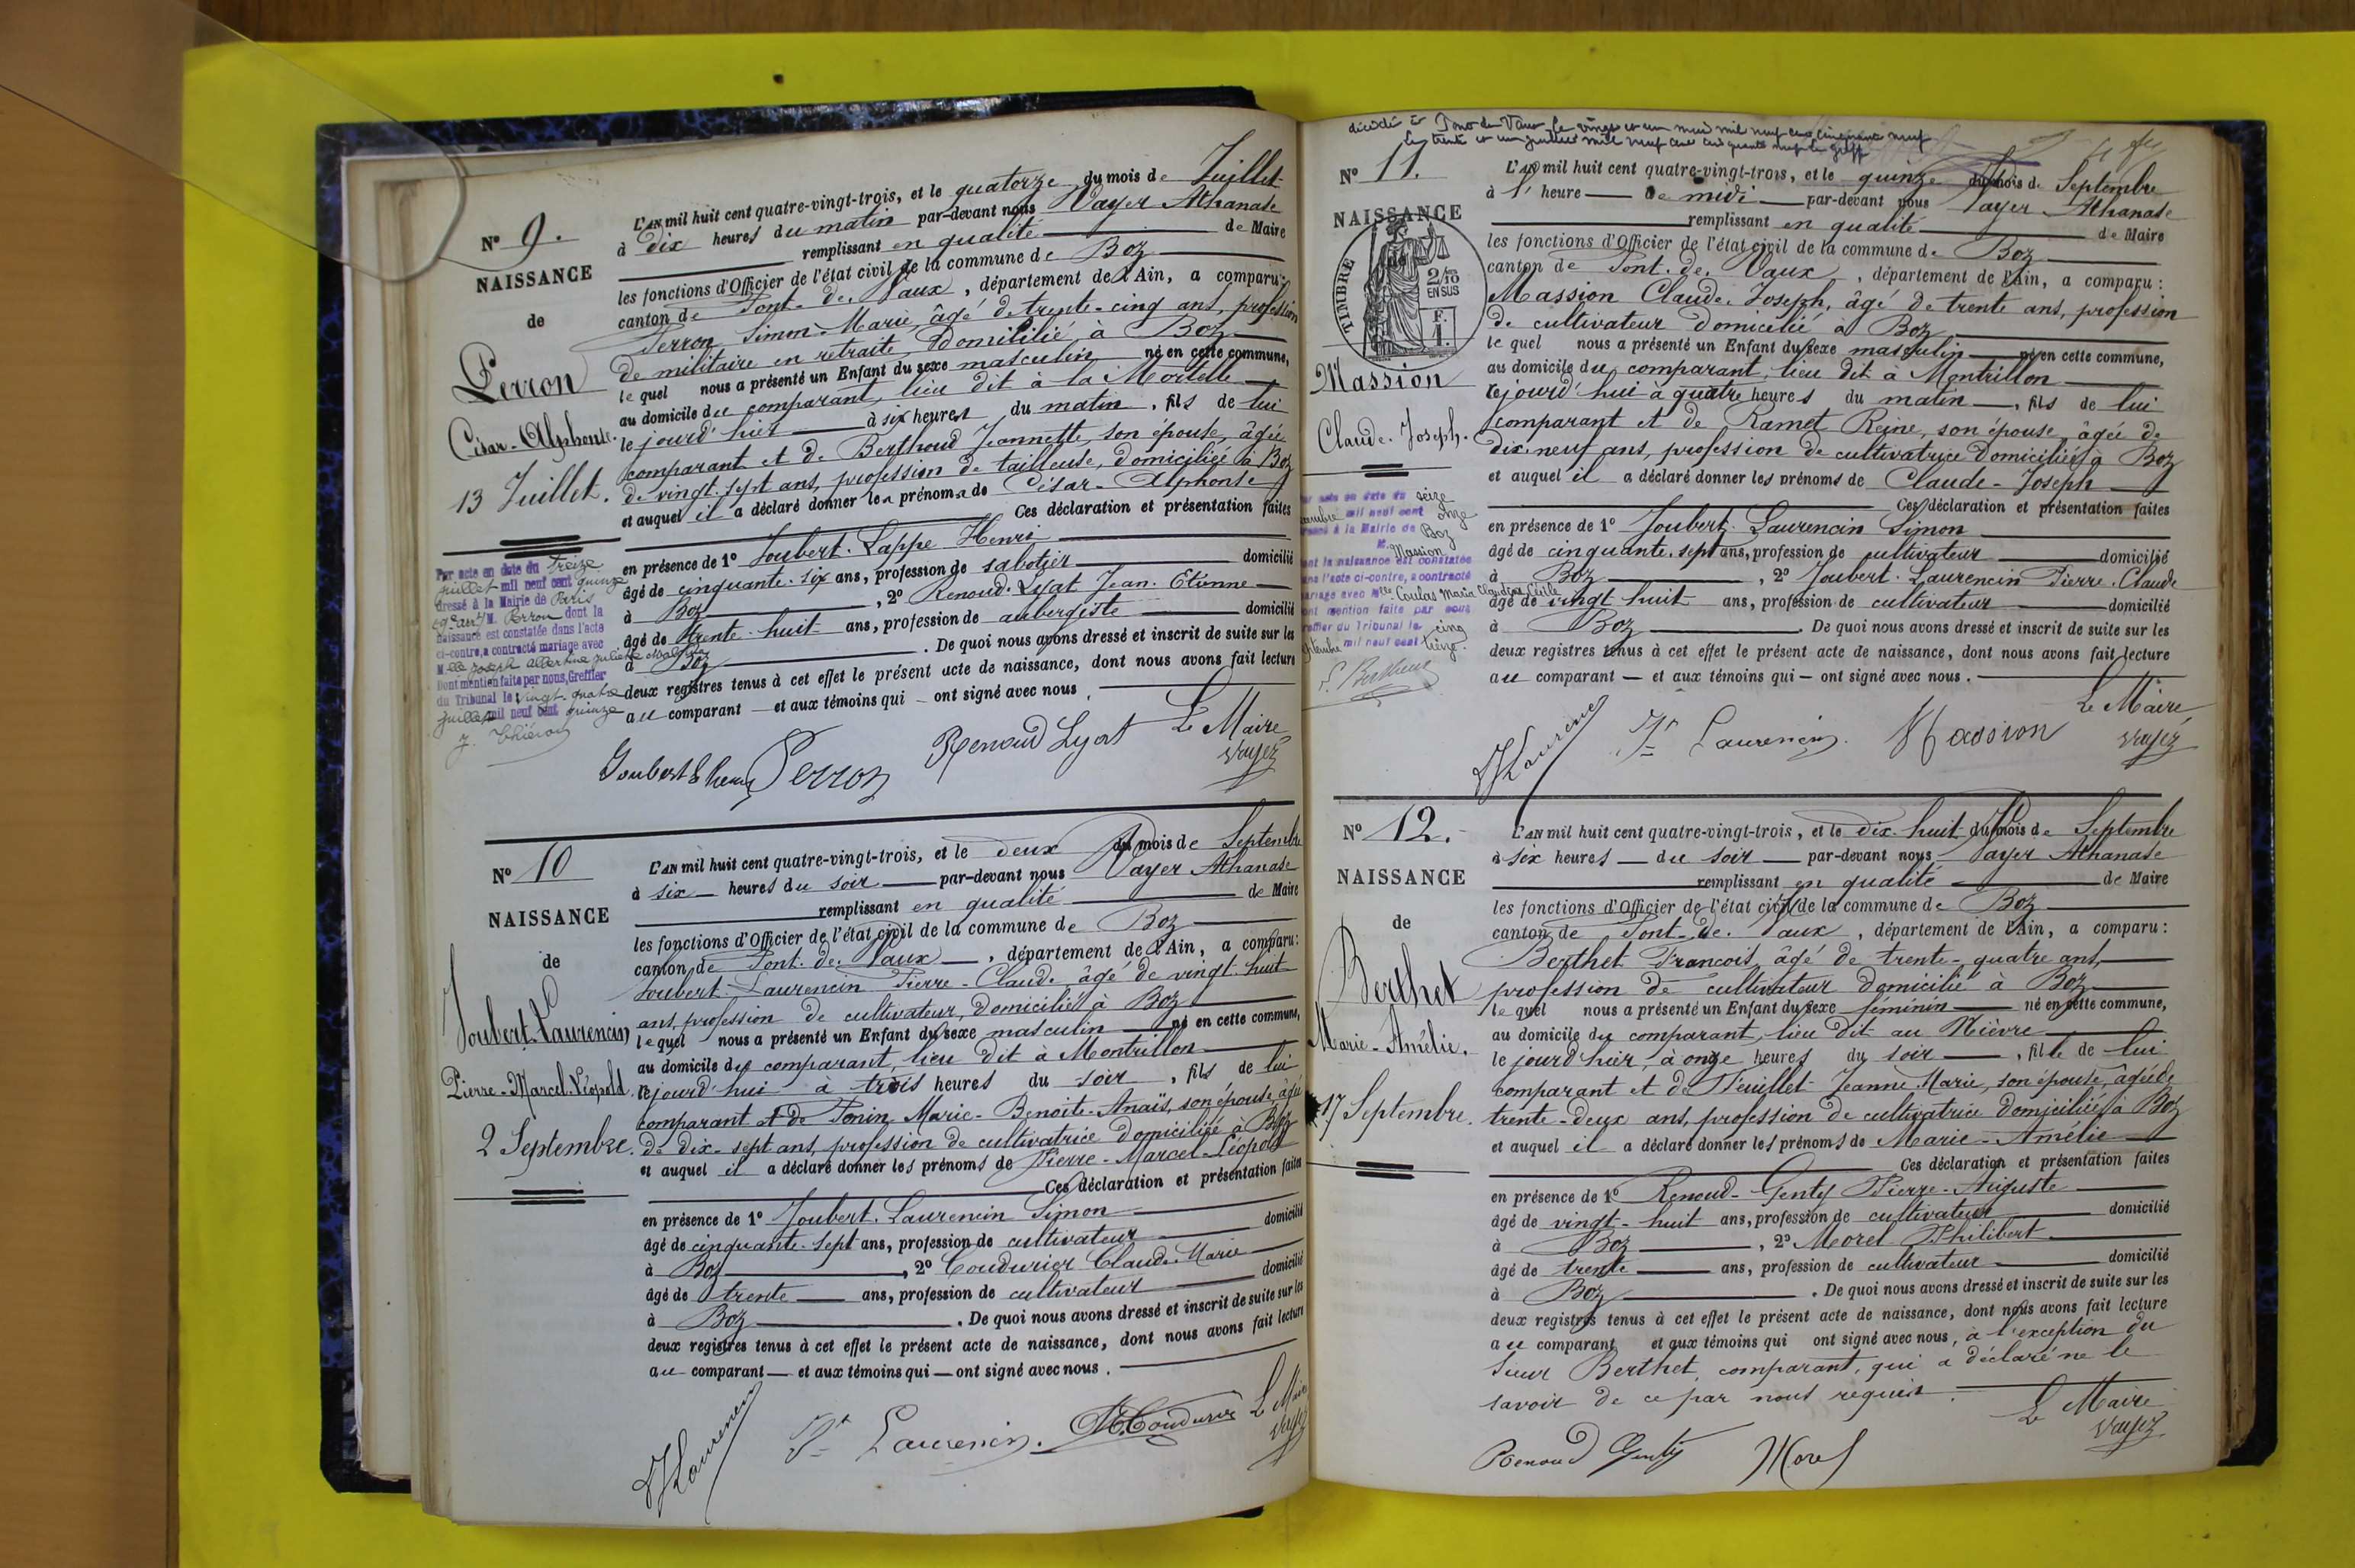 N° 9.
NAISSANCE
de
Perron
César-Alphonse.
13 Juillet.
Par acte en date du treize
juillet mil neuf cent quinze
dressé à la Mairie de Paris
M. Perron dont la
naissance est constatée dans l'acte
ci-contre, a contracté mariage avec
Mlle Joseph Albertine Juliette
Dont mention faite par nous, Greffier
du Tribunal le vingt-quatre
juillet mil neuf cent quinze
L'AN mil huit cent quatre-vingt-trois, et le quatorze du mois de Juillet
à dix heures du matin par-devant nous Vayer Athanase
remplissant en qualité de Maire
les fonctions d'Officier de l'état civil de la commune de Boz
canton de Pont-de-Vaux, département de l'Ain, a comparu:
Perron Simon-Marie, âgé de trente-cinq ans, profession
de militaire en retraite, domicilié à Boz
lequel nous a présenté un Enfant du sexe masculin né en cette commune,
au domicile du comparant, lieu dit à la Mortelle
le jourd'hier à six heures du matin, fils de lui
comparant et de Berthoud Jeannette, son épouse, âgée
de vingt-sept ans, profession de tailleuse, domiciliée à Boz
et auquel il a déclaré donner les prénoms de César-Alphonse
Ces déclaration et présentation faites
en présence de 1° Joubert-Lappe Henri
âgé de cinquante-six ans, profession de sabotier domicilié
à Boz, 2° Renoud-Lyat Jean-Etienne
âgé de trente-huit ans, profession de aubergiste domicilié
à Boz. De quoi nous avons dressé et inscrit de suite sur les
deux registres tenus à cet effet le présent acte de naissance, dont nous avons fait lecture
au comparant et aux témoins qui ont signé avec nous.
Le Maire
Perron Renoud Lyat Vayer
N° 10
NAISSANCE
de
Joubert-Laurencin
Pierre-Marcel-Léopold.
2 Septembre.
L'AN mil huit cent quatre-vingt-trois, et le deux du mois de Septembre
à six heures du soir par-devant nous Vayer Athanase
remplissant en qualité de Maire
les fonctions d'Officier de l'état civil de la commune de Boz
canton de Pont-de-Vaux, département de l'Ain, a comparu:
Joubert-Laurencin Pierre-Claude âgé de vingt-huit
ans, profession de cultivateur, domicilié à Boz
lequel nous a présenté un Enfant du sexe masculin né en cette commune,
au domicile du comparant, lieu dit à Montrillon
cejourd'hui à trois heures du soir, fils de lui
comparant et de Ponin Marie-Benoite-Anaïs, son épouse, âgée
de dix-sept ans, profession de cultivatrice domiciliée à Boz
et auquel il a déclaré donner les prénoms de Pierre-Marcel-Léopold
Ces déclaration et présentation faites
en présence de 1° Joubert-Laurencin Simon
âgé de cinquante-sept ans, profession de cultivateur domicilié
à Boz, 2° Coudurier Claude-Marie
âgé de trente ans, profession de cultivateur domicilié
à Boz. De quoi nous avons dressé et inscrit de suite sur les
deux registres tenus à cet effet le présent acte de naissance, dont nous avons fait lecture
au comparant et aux témoins qui ont signé avec nous.
Le Maire
Laurencin Laurencin Coudurier Vayer
décédé à Pont de Vaux le vingt et un mai mil neuf cent cinquante neuf
le trente et un juillet mil neuf cent cinquante neuf
N° 11.
NAISSANCE
TIMBRE
2/10 EN SUS
F. 1.
Massion
Claude-Joseph.
Par acte en date du seize
mil neuf cent onze
dressé à la Mairie de Boz
M. Massion
dont la naissance est constatée
dans l'acte ci-contre, a contracté
mariage avec Mlle Coulas Maria Claudia Cécile
dont mention faite par nous
Greffier du Tribunal le cinq
mil neuf cent treize.
L'AN mil huit cent quatre-vingt-trois, et le quinze du mois de Septembre
à l' heure de midi par-devant nous Vayer Athanase
remplissant en qualité de Maire
les fonctions d'Officier de l'état civil de la commune de Boz
canton de Pont-de-Vaux, département de l'Ain, a comparu:
Massion Claude-Joseph, âgé de trente ans, profession
de cultivateur domicilié à Boz
lequel nous a présenté un Enfant du sexe masculin né en cette commune,
au domicile du comparant, lieu dit à Montrillon
cejourd'hui à quatre heures du matin, fils de lui
comparant et de Ramet Reine, son épouse, âgée de
dix-neuf ans, profession de cultivatrice domiciliée à Boz
et auquel il a déclaré donner les prénoms de Claude-Joseph
Ces déclaration et présentation faites
en présence de 1° Joubert-Laurencin Simon
âgé de cinquante-sept ans, profession de cultivateur domicilié
à Boz, 2° Joubert-Laurencin Pierre-Claude
âgé de vingt huit ans, profession de cultivateur domicilié
à Boz. De quoi nous avons dressé et inscrit de suite sur les
deux registres tenus à cet effet le présent acte de naissance, dont nous avons fait lecture
au comparant et aux témoins qui ont signé avec nous.
Le Maire
Laurencin Laurencin Massion Vayer
N° 12.
NAISSANCE
de
Berthet
Marie-Amélie.
17 Septembre.
L'AN mil huit cent quatre-vingt-trois, et le dix-huit du mois de Septembre
à six heures du soir par-devant nous Vayer Athanase
remplissant en qualité de Maire
les fonctions d'Officier de l'état civil de la commune de Boz
canton de Pont-de-Vaux, département de l'Ain, a comparu:
Berthet François âgé de trente-quatre ans,
profession de cultivateur domicilié à Boz
lequel nous a présenté un Enfant du sexe féminin né en cette commune,
au domicile du comparant, lieu dit au Nièvre
le jourd'hier, à onze heures du soir, fille de lui
comparant et de Feuillet Jeanne Marie, son épouse, âgée de
trente-deux ans, profession de cultivatrice domiciliée à Boz
et auquel il a déclaré donner les prénoms de Marie-Amélie
Ces déclaration et présentation faites
en présence de 1° Renoud-Genty Pierre-Auguste
âgé de vingt-huit ans, profession de cultivateur domicilié
à Boz, 2° Morel Philibert
âgé de trente ans, profession de cultivateur domicilié
à Boz. De quoi nous avons dressé et inscrit de suite sur les
deux registres tenus à cet effet le présent acte de naissance, dont nous avons fait lecture
au comparant et aux témoins qui ont signé avec nous, à l'exception du
sieur Berthet, comparant, qui a déclaré ne le
savoir de ce par nous requis.
Le Maire
Renoud Genty Morel Vayer